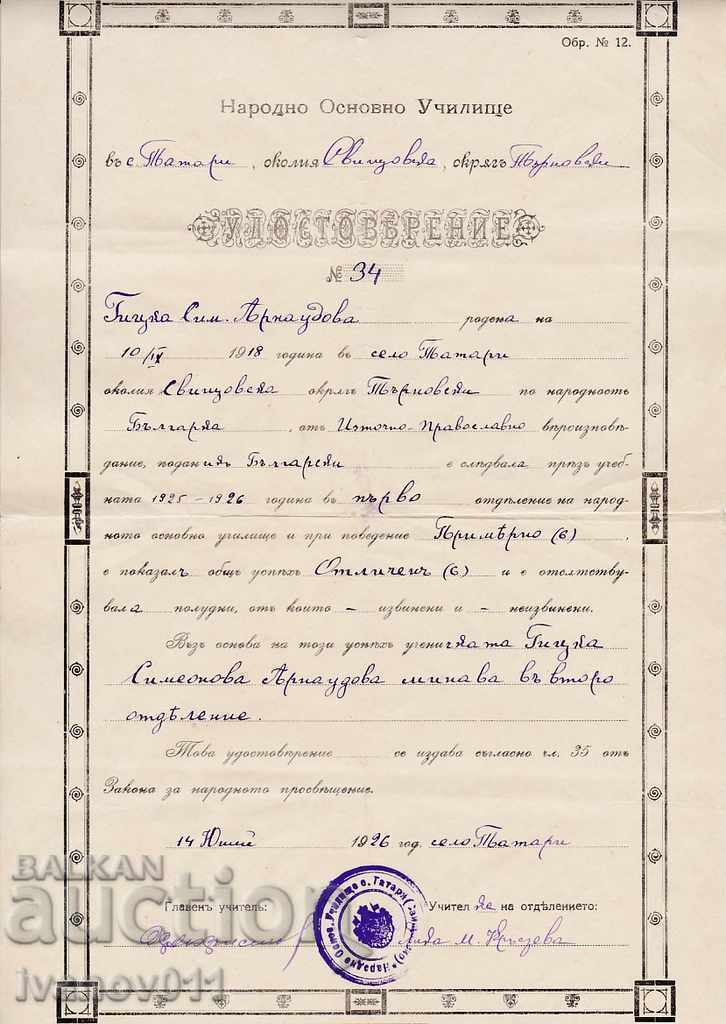 Обр. № 12.
Народно Основно Училище
въ с. Татари, околия Свищовска, окрягъ Търновски
УДОСТОВѢРЕНИЕ
№ 34
Гицка Сим. Арнаудова родена на
10/IX 1918 година въ село Татари
околия Свищовска окрягъ Търновски по народность
Българка, отъ Източно-Православно вѣроизповѣ-
дание, поданикъ Български е слѣдвала прѣзъ учеб-
ната 1925-1926 година въ първо отдѣление на народ-
ното основно училище и при поведение Примѣрно (6),
е показалъ общъ успѣхъ Отличенъ (6) и е отсѫтству-
вала полудни, отъ които - извинени и - неизвинени.
Възъ основа на този успѣхъ ученичката Гицка
Симеонова Арнаудова минава въ второ
отдѣление.
Това удостовѣрение се издава съгласно чл. 35 отъ
Закона за народното просвѣщение.
14 Юний 1926 год. село Татари
Главенъ учитель: Учителка на отдѣлението:
Лида М.
Народно Основ. Училище с. Татари
BALKAN
auction
ivanov011